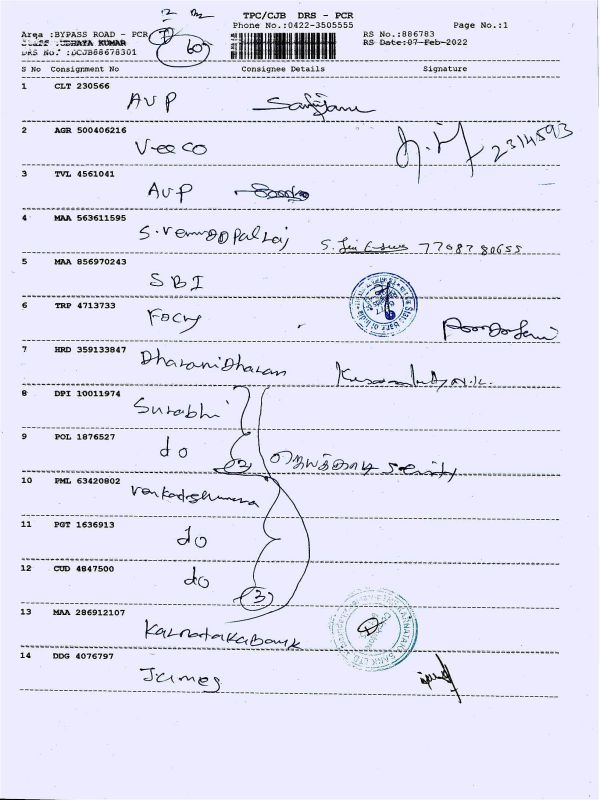 12
TPC/CJB DRS - PCR
Area :BYPASS ROAD - PCR
Phone No.:0422-3505555
Page No.:1
Staff :UDHAYA KUMAR
RS No.:886783
DRS No. :DCJB88678301
RS Date:07-Feb-2022
60
S No Consignment No Consignee Details Signature
1 CLT 230566
AVP
2 AGR 500406216
Veeco
2314593
3 TVL 4561041
AVP
4 MAA 563611595
S.Venugopalraj
5 MAA 856970243
SBI
State Bank of India
6 TRP 4713733
Focus
7 HRD 359133847
DharaniDharan
8 DPI 10011974
Surabhi
9 POL 1876527
do
(2)
10 PML 63420802
11 PGT 1636913
do
12 CUD 4847500
do
(3)
13 MAA 286912107
Karnataka bank
KARNATAKA BANK LTD
14 DDG 4076797
James